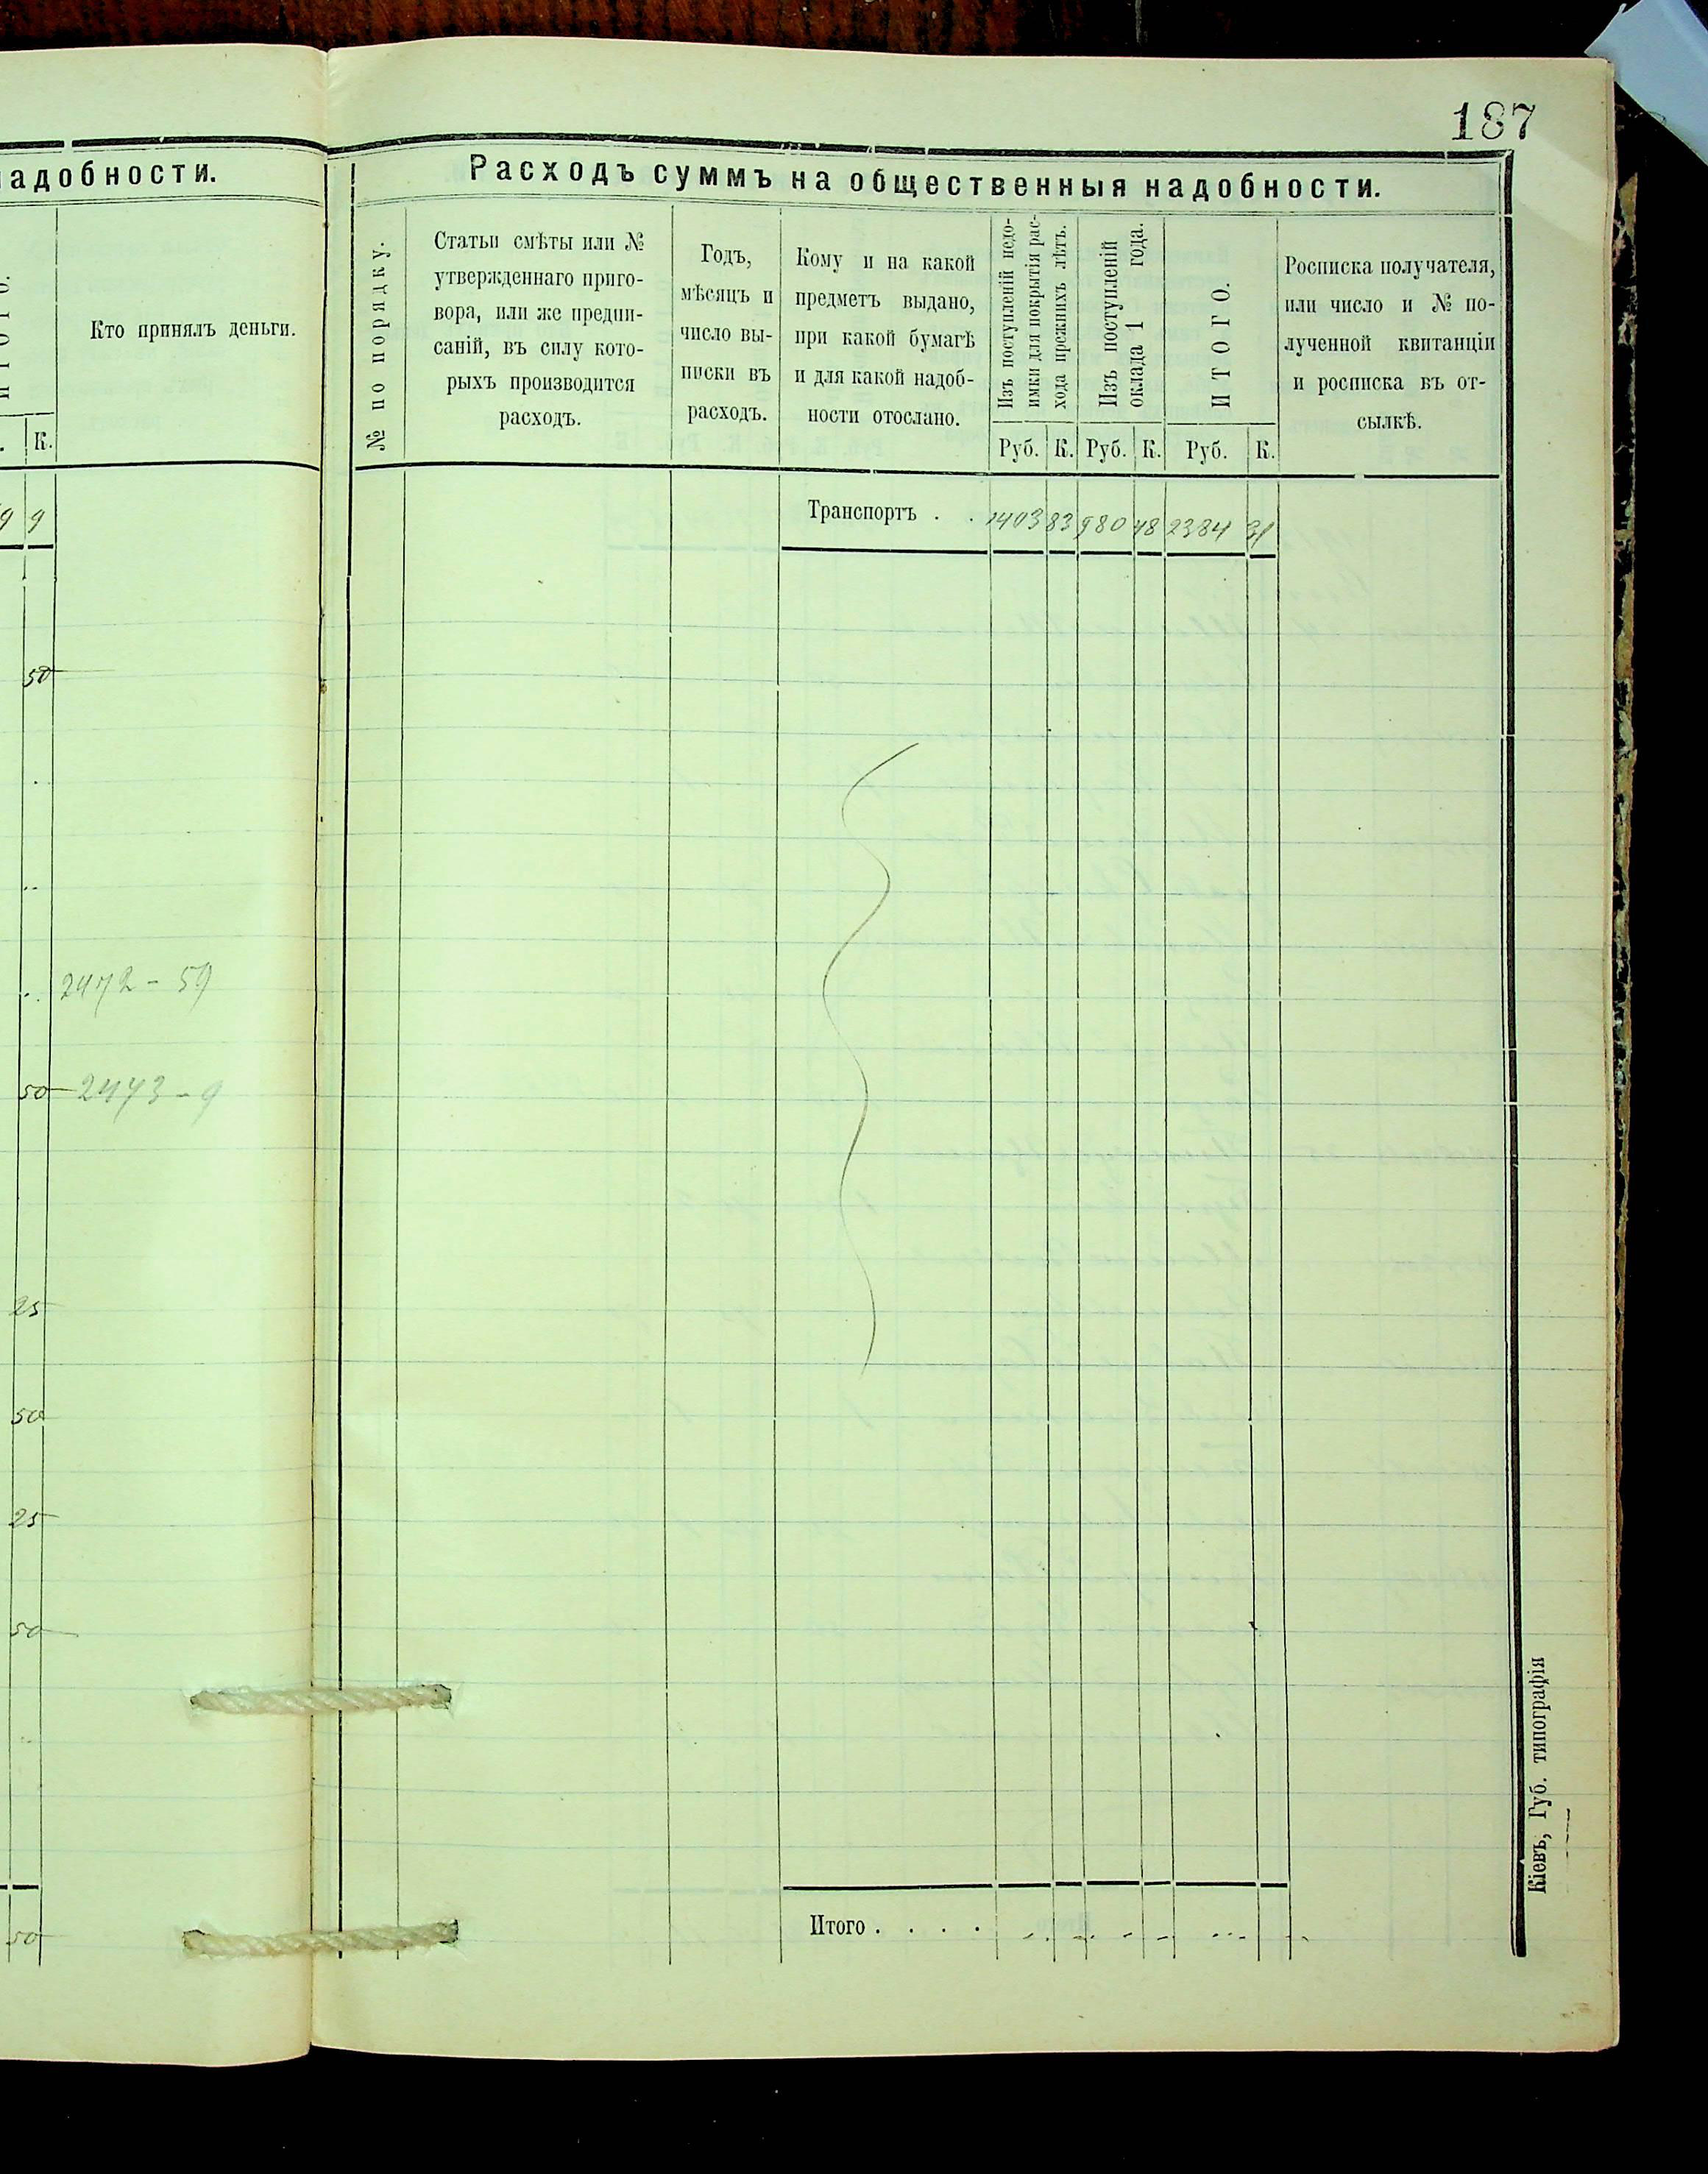 187
адобности.
Кто принялъ деньги.
К.
9 9
50
2472 - 59
50 2473 - 9
25
50
25
50
50
Расходъ суммъ на общественныя надобности.
№ по порядку.
Статьи смѣты или №
утвержденнаго приго-
вора, или же предпи-
саній, въ силу кото-
рыхъ производится
расходъ.
Годъ,
мѣсяцъ и
число вы-
писки въ
расходъ.
Кому и на какой
предметъ выдано,
при какой бумагѣ
и для какой надоб-
ности отослано.
Изъ поступленій недо-
имки для покрытія рас-
хода прежнихъ лѣтъ.
Изъ поступленій
оклада 1 года.
ИТОГО.
Росписка получателя,
или число и № по-
лученной квитанціи
и росписка въ от-
сылкѣ.
Руб. К. Руб. К. Руб. К.
Транспортъ . . 1403 83 980 48 2384 31
Итого . . . .
Кіевъ, Губ. типографія